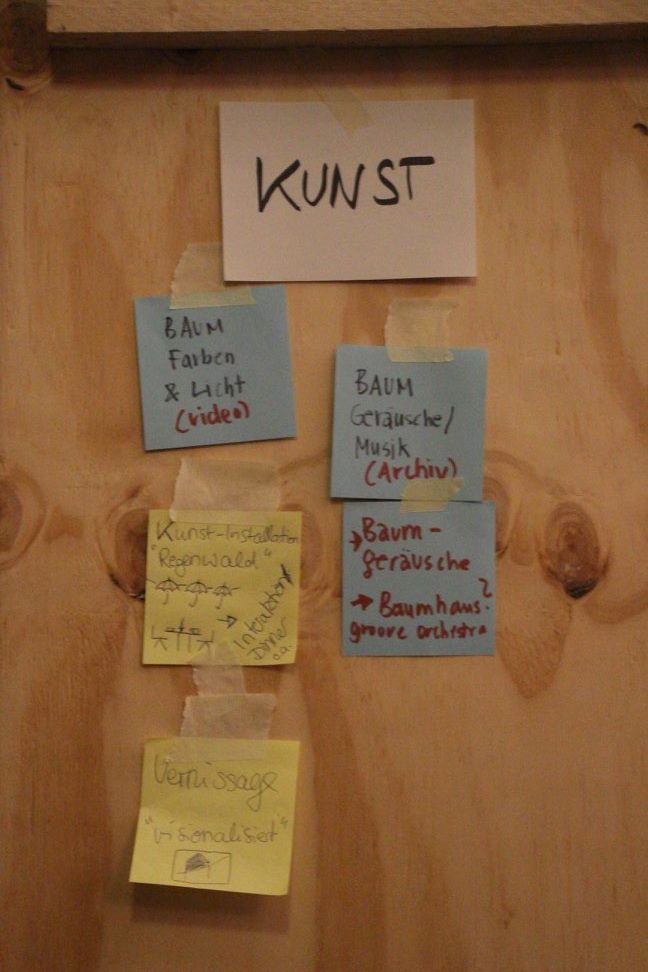 KUNST
BAUM
Farben
& Licht
(video)
BAUM
Geräusche/
Musik
(Archiv)
Kunst-Installation
"Regenwald"
→ Interaktion
Dinner
o.a.
→ Baum-
geräusche
→ Baumhaus?
groove orchestra
Vernissage
"visionalisiert"